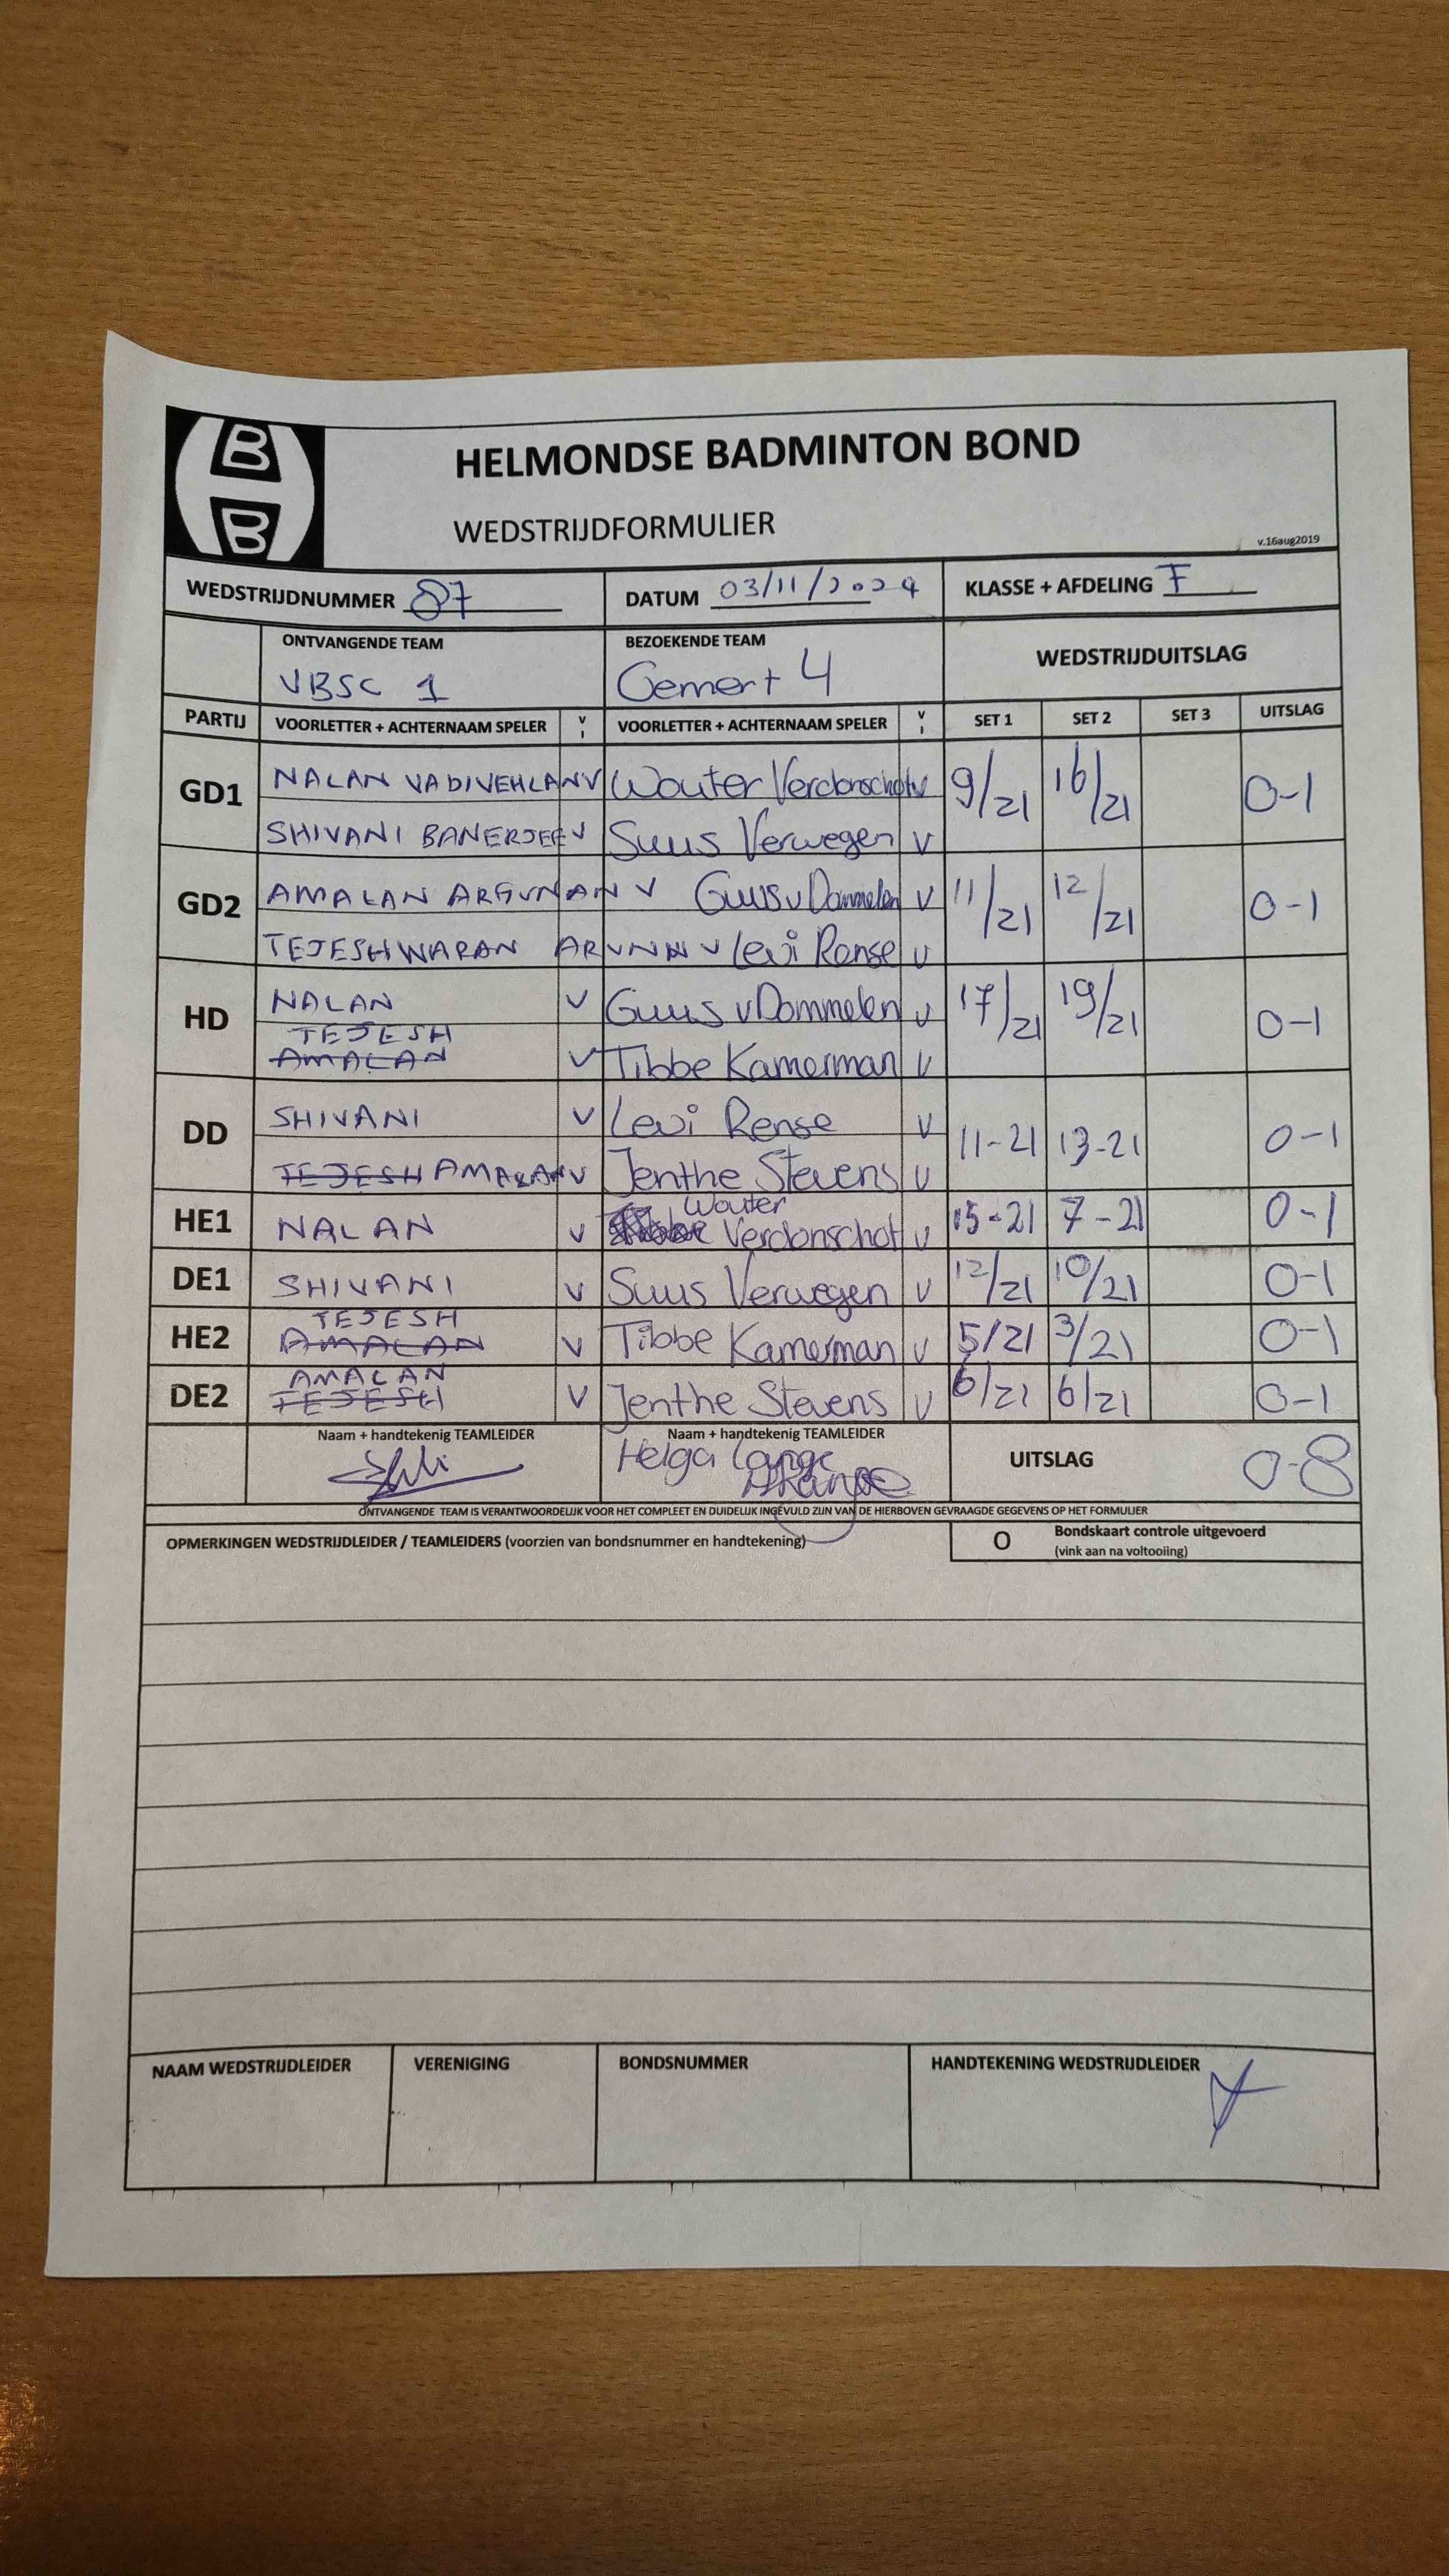 B
B
HELMONDSE BADMINTON BOND
WEDSTRIJDFORMULIER
v.16aug2019
WEDSTRIJDNUMMER 87 DATUM 03/11/2024 KLASSE + AFDELING F
ONTVANGENDE TEAM BEZOEKENDE TEAM WEDSTRIJDUITSLAG
VBSC 1 Gemert 4
PARTIJ VOORLETTER + ACHTERNAAM SPELER v ; VOORLETTER + ACHTERNAAM SPELER v ; SET 1 SET 2 SET 3 UITSLAG
GD1 NALAN VADIVEHLAN V Wouter Verdonschot v 9/21 16/21 0-1
SHIVANI BANERJEE V Suus Verwegen V
GD2 AMALAN ARGUNAN V Guus v Dommelen V 11/21 12/21 0-1
TEJESHWARAN V Levi Rense V
HD NALAN V Guus v Dommelen V 17/21 19/21 0-1
TEJESH
AMALAN V Tibbe Kamerman V
DD SHIVANI V Levi Rense V 11-21 13-21 0-1
TEJESH AMALAN V Jenthe Stevens V
Wouter
HE1 NALAN V Verdonschot V 15-21 7-21 0-1
DE1 SHIVANI V Suus Verwegen V 12/21 10/21 0-1
TEJESH
HE2 AMALAN V Tibbe Kamerman V 5/21 3/21 0-1
AMALAN
DE2 TEJESH V Jenthe Stevens V 6/21 6/21 0-1
Naam + handtekenig TEAMLEIDER Naam + handtekenig TEAMLEIDER UITSLAG 0-8
Helga Lange
ONTVANGENDE TEAM IS VERANTWOORDELIJK VOOR HET COMPLEET EN DUIDELIJK INGEVULD ZIJN VAN DE HIERBOVEN GEVRAAGDE GEGEVENS OP HET FORMULIER
OPMERKINGEN WEDSTRIJDLEIDER / TEAMLEIDERS (voorzien van bondsnummer en handtekening) O Bondskaart controle uitgevoerd
(vink aan na voltooiing)
NAAM WEDSTRIJDLEIDER VERENIGING BONDSNUMMER HANDTEKENING WEDSTRIJDLEIDER